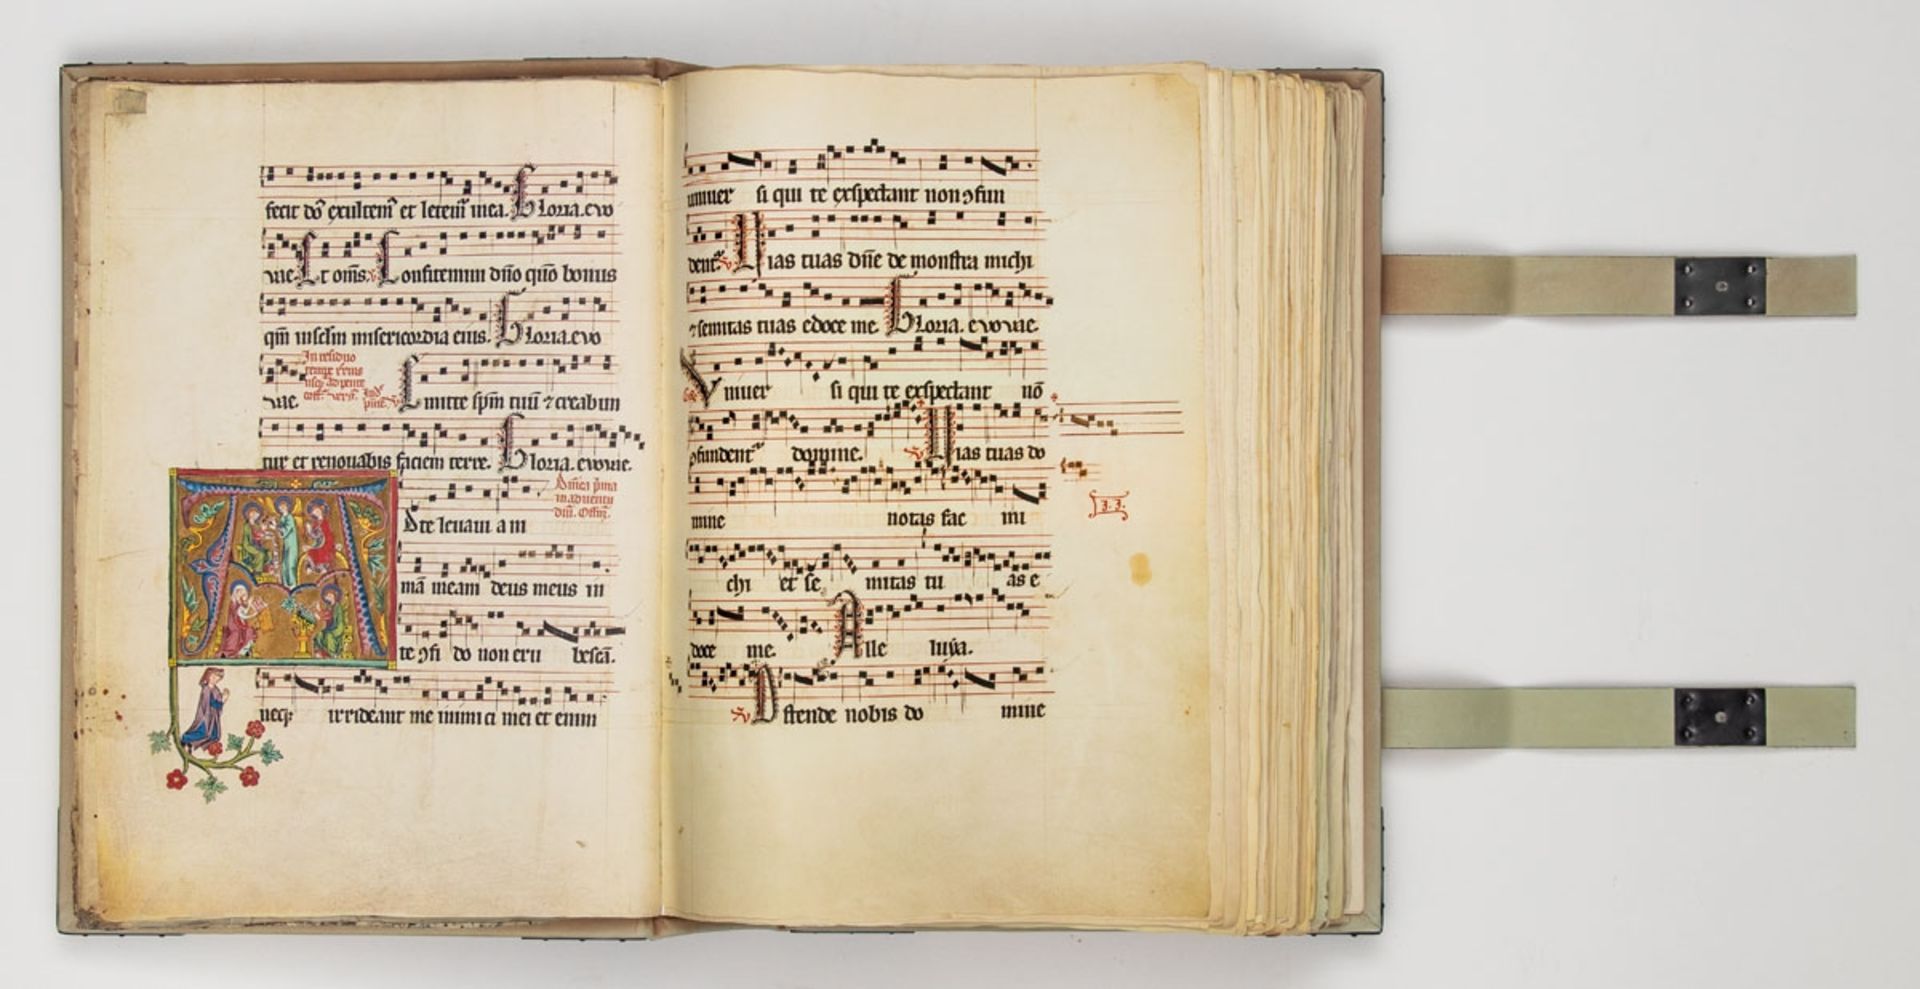 fecit dō exultem̄ et letem̄ in ea. Gloria. evo
vae. Et om̄s. V Confitemini dn̄o qm̄ bonus
qm̄ in sclm misericordia eius. Gloria. evo
In residuo
vae. Emitte spm̄ tuū ⁊ creabun
tur et renouabis faciem terre. Gloria. evovae.
Dn̄ica p̄ma
in aduentu
dn̄i. Offm̄.
Ad te leuaui a ni
mā meam deus meus in
te ↄfi do non eru bescā.
neq irrideant me inimi ci mei et enim
uniuer si qui te exspectant non ↄfun
dent᷑. V Uias tuas dn̄e de monstra michi
⁊ semitas tuas edoce me. Gloria. evovae.
Vniuer si qui te exspectant nō
ↄfundent᷑ domine. V Uias tuas do
mine notas fac mi
chi et se mitas tu as e
doce me. Alle luya.
V Ostende nobis do mine